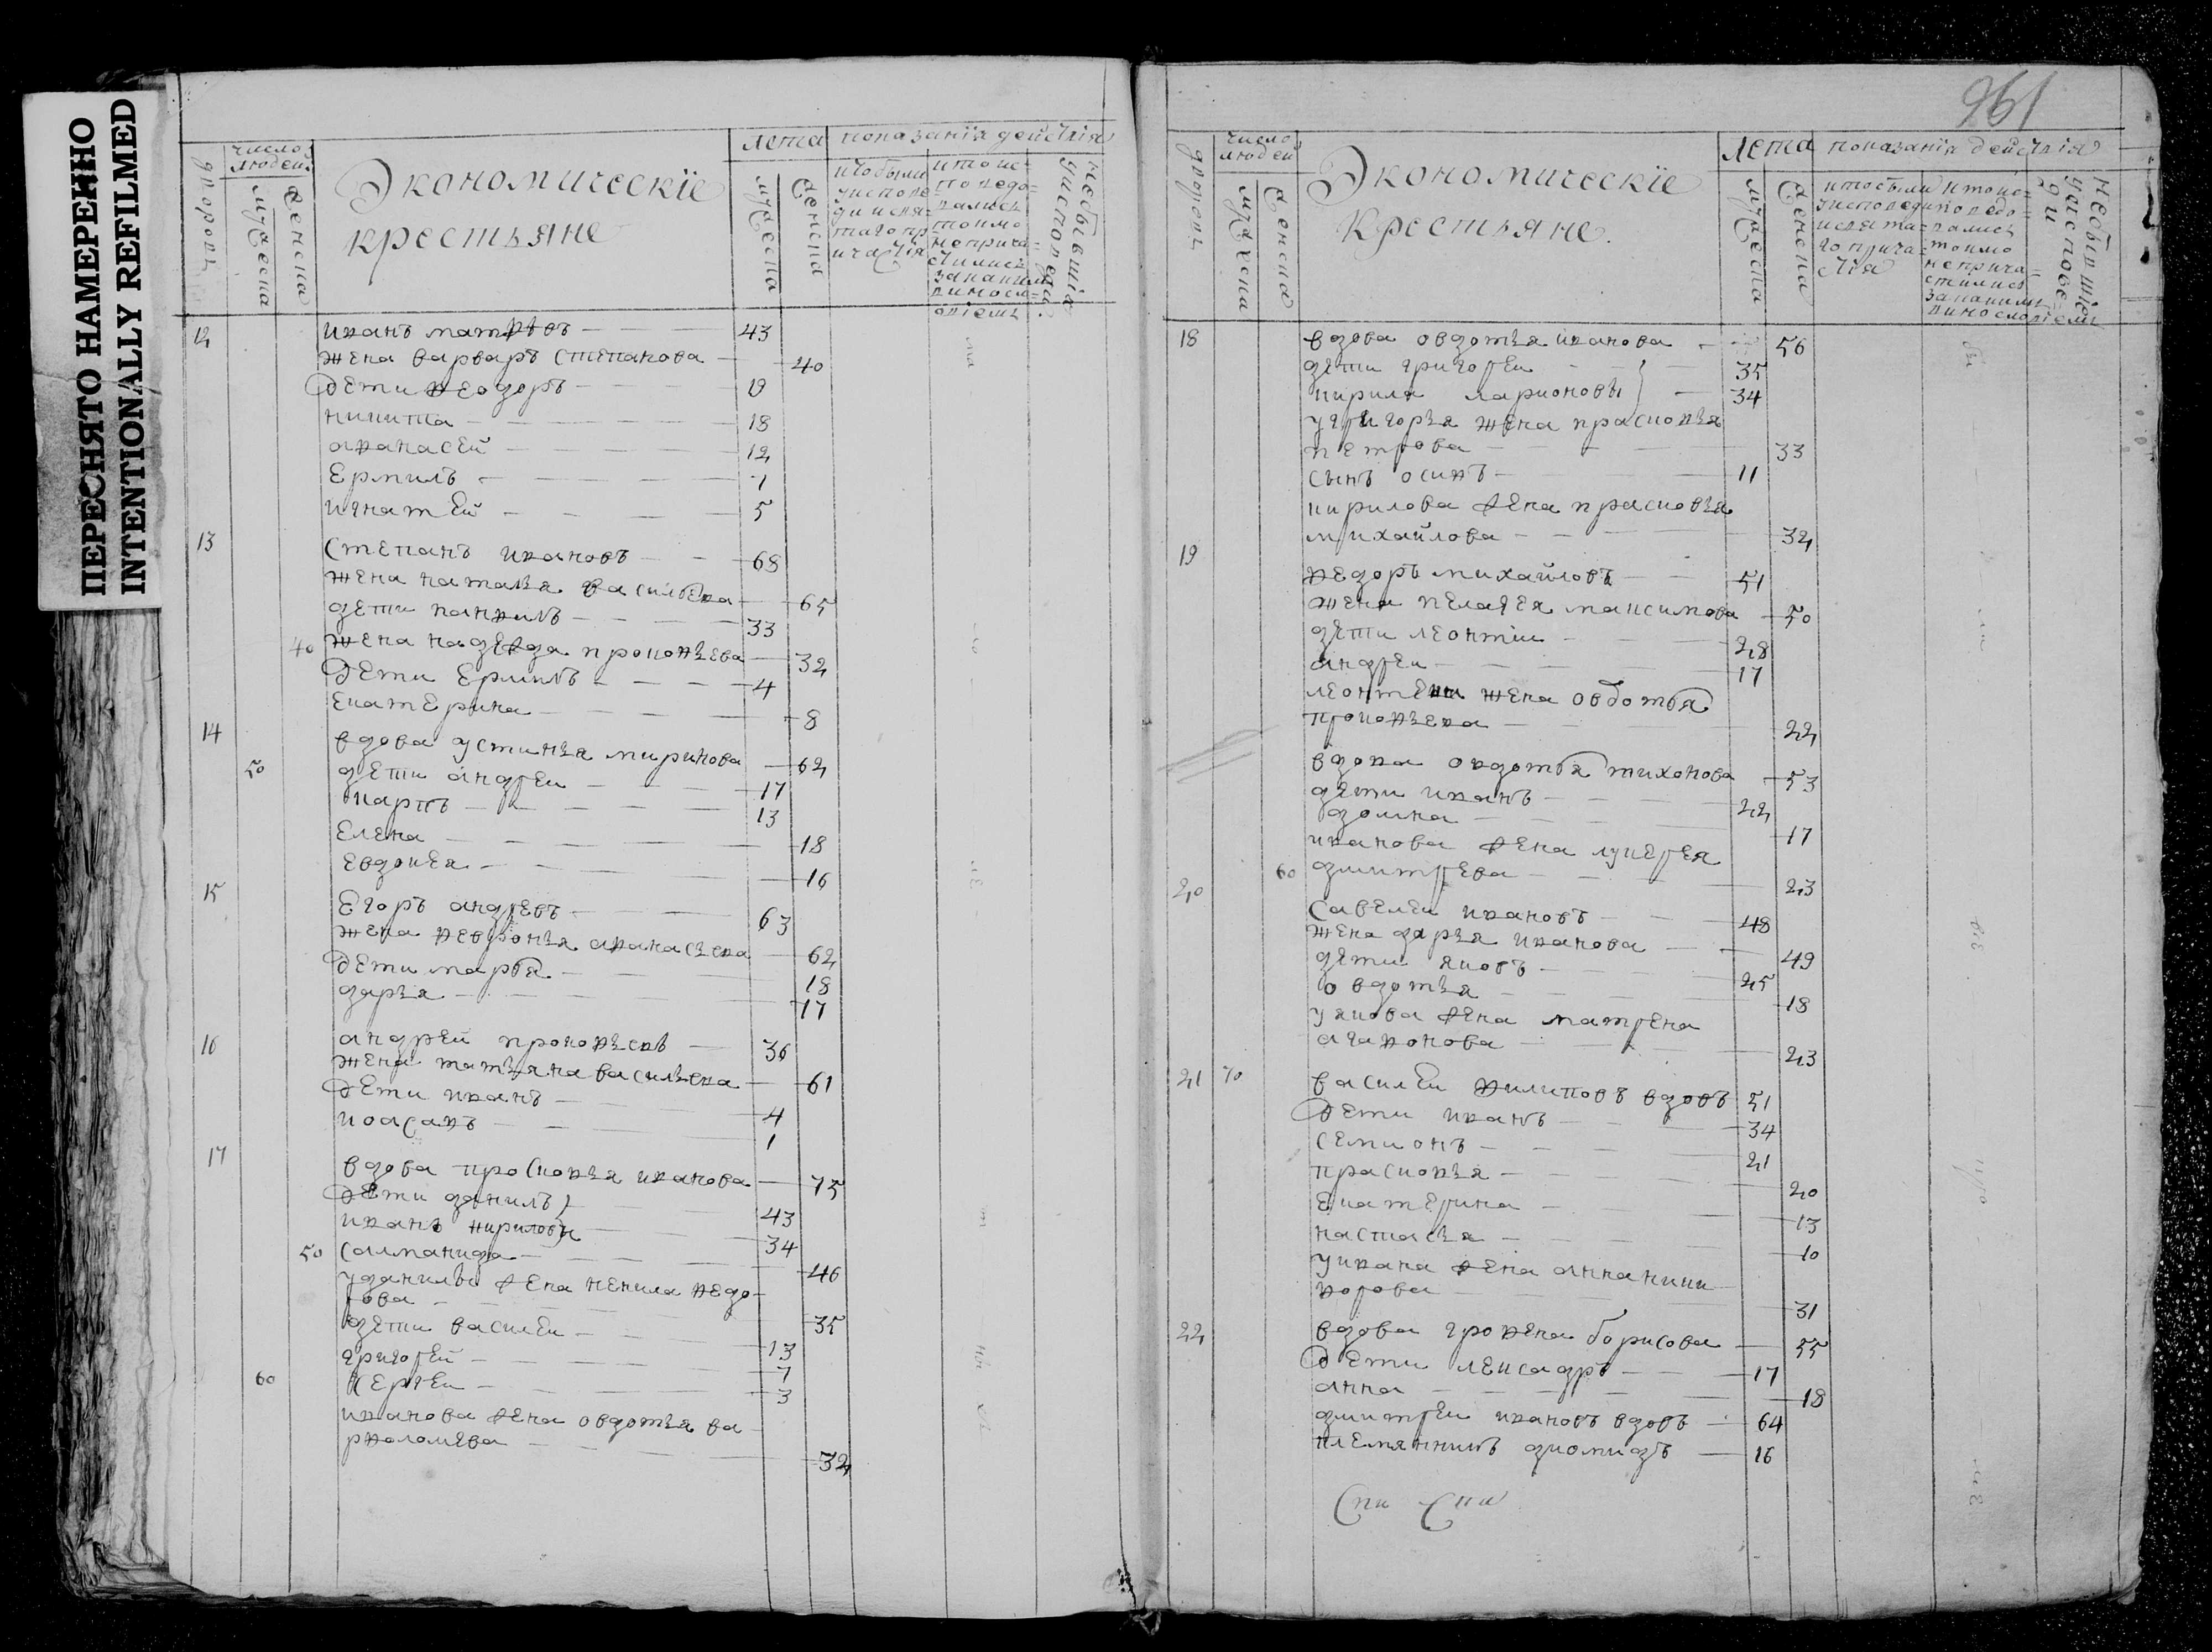 ПЕРЕСНЯТО НАМЕРЕННО
INTENTIONALLY REFILMED
дворовъ
число людей
мужеска
женска
Экономическïе
крестьяне
лета
мужеска
женска
показанïя действïя
12 иванъ 43
жена варвара степанова 40
дети федоръ 19
никита 18
афанасей 12
Ермилъ 7
игнатей 5
13 степанъ ивановъ 68
жена наталья васильева 65
дети панфилъ 33
40 жена надежда прокофьева 32
дети Ермилъ 4
Екатерина 8
14 вдова устинья миронова 62
50 дети андреи 17
карпъ 13
Елена 18
Евдокея 16
15 Егоръ андревъ 63
жена февронья афанасьева 62
дети марфа 18
дарья 17
16 андрей прокофьевъ 36
жена татьяна васильева 61
дети иванъ 4
иоасафъ 1
17 вдова просковья иванова 75
дети данилъ 43
иванъ кириловы 34
50 саламанида 46
у данилы жена ненила федо-
рова 35
дети василеи 13
григорей 7
60 сергеи 3
иванова жена овдотья ва
рфоломева 32
261
дворовъ
число людей
мужеска
женска
Экономическïе
крестьяне.
лета
мужеска
женска
показанïя действïя
18 вдова овдотья иванова 56
дети григореи 35
кирила ларионовы 34
у григорья жена прасковья
петрова 33
сынъ осипъ 11
кирилова жена прасковья
михайлова 32
19 федоръ михайловъ 51
жена пелагея максимова 50
дети леонтïи 28
андреи 17
леонтеия жена овдотья
прокофьева 22
вдова овдотья тихонова 53
дети иванъ 22
домна 17
иванова жена лукерея
60 дмитрева 23
20 савелеи ивановъ 48
жена дарья иванова 49
дети яковъ 25
овдотья 18
у якова жена матрена
агафонова 23
21 70 василеи филиповъ вдовъ 51
дети иванъ 34
семионъ 21
прасковья 20
Екатерина 13
настасья 10
у ивана жена анна ники
форова 31
22 вдова грофена борисова 55
дети лексадръ 17
анна 18
дмитреи ивановъ вдовъ 64
племянникъ диомидъ 16